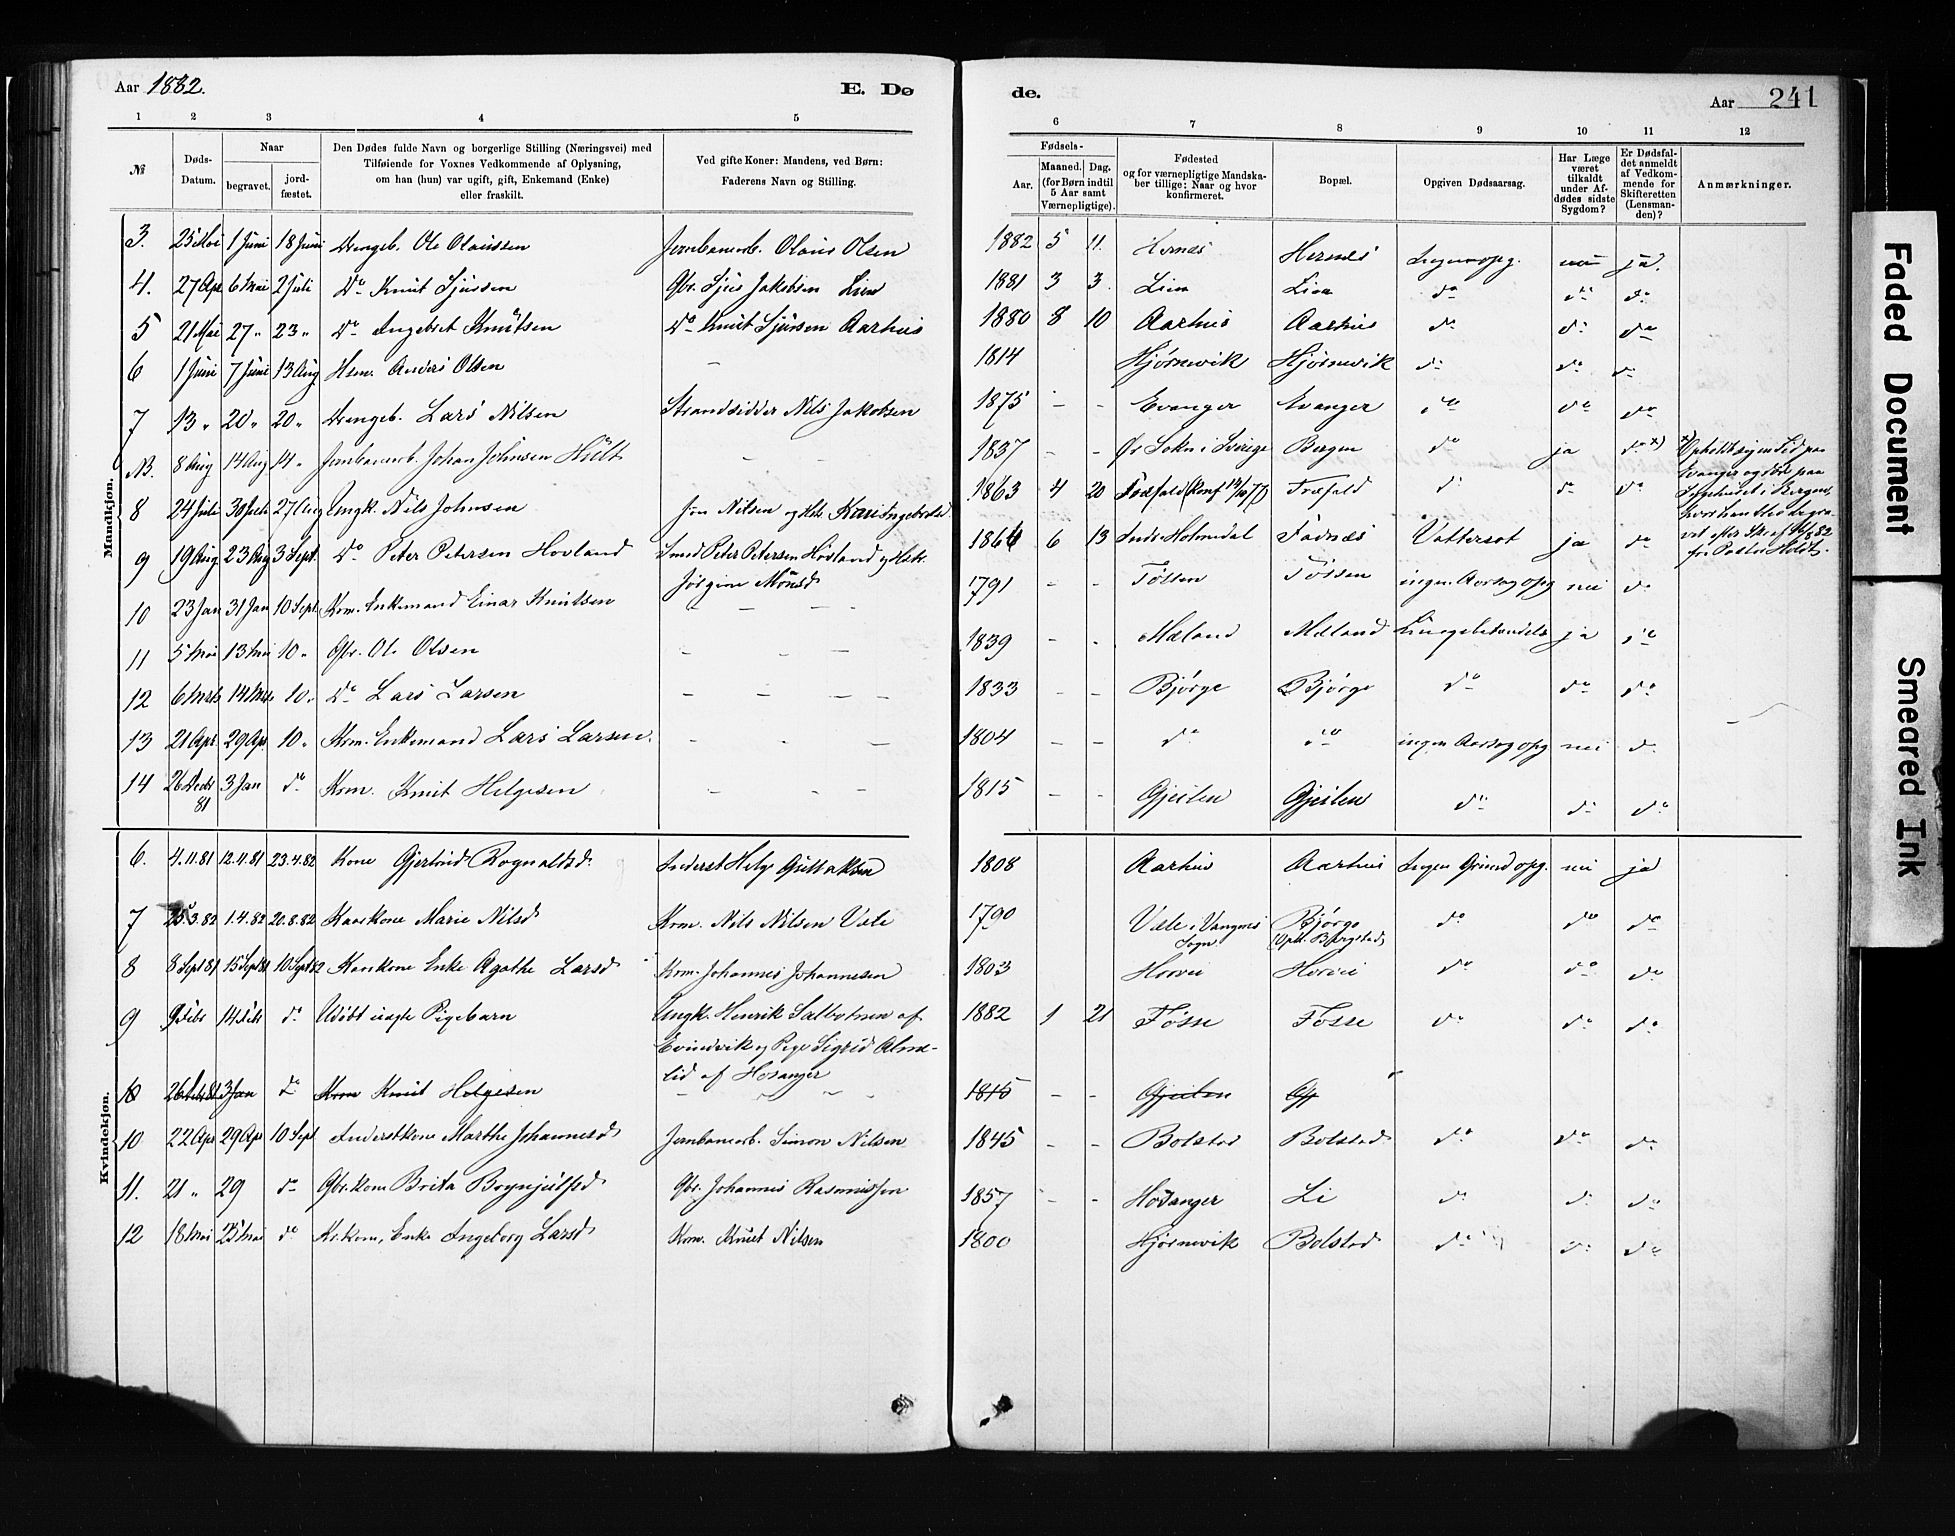 Aar 1882.
E. Dø
de.
Aar 241
1 2 3 4 5 6 7 8 9 10 11 12
№
Døds-Datum.
Naar
begravet.
jord-fæstet.
Den Dødes fulde Navn og borgerlige Stilling (Næringsvei) med
Tilføiende for Voxnes Vedkommende af Oplysning,
om han (hun) var ugift, gift, Enkemand (Enke)
eller fraskilt.
Ved gifte Koner: Mandens, ved Børn:
Faderens Navn og Stilling.
Fødsels-
Aar.
Maaned. Dag.
(for Børn indtil
5 Aar samt
Værnepligtige).
Fødested
og for værnepligtige Mandska-
ber tillige: Naar og hvor
konfirmeret.
Bopæl.
Opgiven Dødsaarsag.
Har Læge
været
tilkaldt
under Af-
dødes sidste
Sygdom?
Er Dødsfal-
det anmeldt
af Vedkom-
mende for
Skifteretten
(Lensman-
den)?
Anmærkninger.
Mandkjøn.
3. 25 Mai 1 Juni 18 Juni Drengeb. Ole Olaussen Jernbanearb. Olaus Olsen 1882 5 11. Hernæs Hernæs Ingen opg. nei ja.
4. 27 Apr 6 Mai 2 Juli Do Knut Sjursen Gbr. Sjur Jakobsen Lien 1881 3 3. Lien Lien do do do
5 21 Mai 27 " 23 " Do Ingebret Knutsen Do Knut Sjursen Aarhus 1880 8 10 Aarhus Aarhus do do do
6 1 Juni 7 Juni 13 Aug Hsm. Anders Olsen - 1814 Hjørnevik Hjørnevik do do do
7 13 " 20 " 20 " Drengeb. Lars Nilsen Strandsidder Nils Jakobsen 1875 - - Evanger Evanger do do do
N. 8 Aug 14 Aug 14 " Jernbanearb. Johan Johnsen Hult - - 1837 - - Sokn i Sverige Bergen do ja do x)
8 24 Juli 30 Juli 27 Aug Ungk. Nils Johnsen Jon Nilsen og Kari Ingebretsd 1863 4 20 Fosfald (Konf 14/10 77) Fosfald do do do
9 19 Aug 23 Aug 3 Sept. Do Peter Petersen Hovland Smed Peter Petersen Hovland og Hstr.
Jørgine Monsd 1864 6 13 Indr. Holmedal Fadnæs Vattersot ja do
10 23 Jan 31 Jan 10 Sept. Krm. Enkemand Einar Knutsen - - - 1791 - - Føssen Føssen ingen Aarsag opg nei do
11 5 Mai 13 Mai 10 " Gbr. Ole Olsen - - - 1839 - - Mæland Mæland Lungebetændelse ja do
12 6 Marts 14 Mts 10 " Do Lars Larsen - - - - 1833 - - Bjørge Bjørge do do do
13 21 Apr. 29 Apr. 10 " Krm. Enkemand Lars Larsen. - - - 1804 - - do do ingen Aarsag opg nei do
14 26 Decbr 81 3 Jan do Krm. Knut Helgesen - - - 1815 - - Gjeilen Gjeilen do do do
x) Opholdt sig en Tid paa
Evanger og døde paa
Sygehuset i Bergen,
Kvindekjøn.
6. 4.11.81 12.11.81 23.4.82 Kone Gjertrud Rognaldsd. Inderst Helge 1808 Aarhus Aarhus Ingen Grund opg. nei ja
7 25.3.82 1.4.82 20.8.82 Kaarkone Marie Nilsd Krm. Nils Nilsen Væle 1790 Væle i Vangens Sogn Bjørge (Oph. Bergstad) do do do
8 8 Sept 81 15 Sept 81 10 Sept 82 Kaarkone Enke Agathe Larsd Krm. Johannes Johannesen 1803 Horvei Horvei do do do
9 9 Febr 14 Febr do Udøbt uægte Pigebarn Ungk. Henrik Salbotnen af
Evindvik og Pige Sigrid Alme-
lid af Hosanger 1882 1 21 Føsse Fosse do do do
10 26 Febr 81 3 Jan do Krm Knut Helgesen - - - 1815 - - Gjeilen Gj
10 22 Apr 29 Apr 10 Sept Inderstkone Marthe Johannesd Jernbanearb. Simon Nilsen 1845 - - Bolstad Bolstad do do do
11. 21 " 29 do Gbr.kone Brita Brynjulfsd Gbr. Johannes Rasmussen 1857 - - Hosanger Li do do do
12 18 Mai 25 Mai do Kr.kone, Enke Ingeborg Larsd Krm. Knut Nilsen 1800 Hjørnevik Bolstad do do do
Faded Document
Smeared Ink